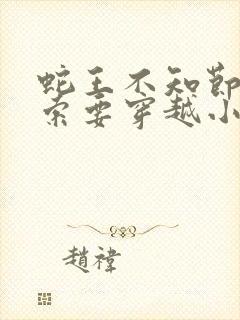 蛇王不知節
索要穿越小
趙禕